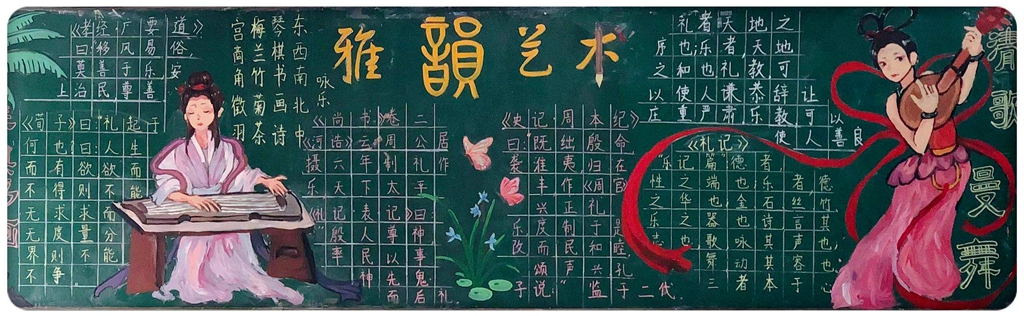 雅韻艺术
《孝经·广要道》
曰移风易俗
莫善于乐,安
上治民尊善
东西南北
琴棋书画诗
梅兰竹菊茶
宫商角徵羽
咏乐
《荀子》曰:礼起于
何也曰人生
而有欲欲而
不得则不能
无求求而
无度量分
界则不能
不争
《尚书卷二
河浩》云周公居
摄六年制礼作
乐天下太平
《礼记表记》曰
殷人尊神
率民以事
神先鬼
而后礼
《史记周本纪》
曰既绌殷命
袭淮夷归在
丰作《周
兴正礼
乐度制于
改而民和
颂声兴
子说"监于二代
礼者天地之
序也乐者,天地
之和也礼教可
以使人谦恭辞让
庄重严肃乐教可以
使人善良
《礼记》
"乐记篇"德者
性之端也乐者德
之华也金石丝竹
乐之器也诗言其
志也歌咏其声也,
舞动其容也,
三者本于
清歌
曼舞